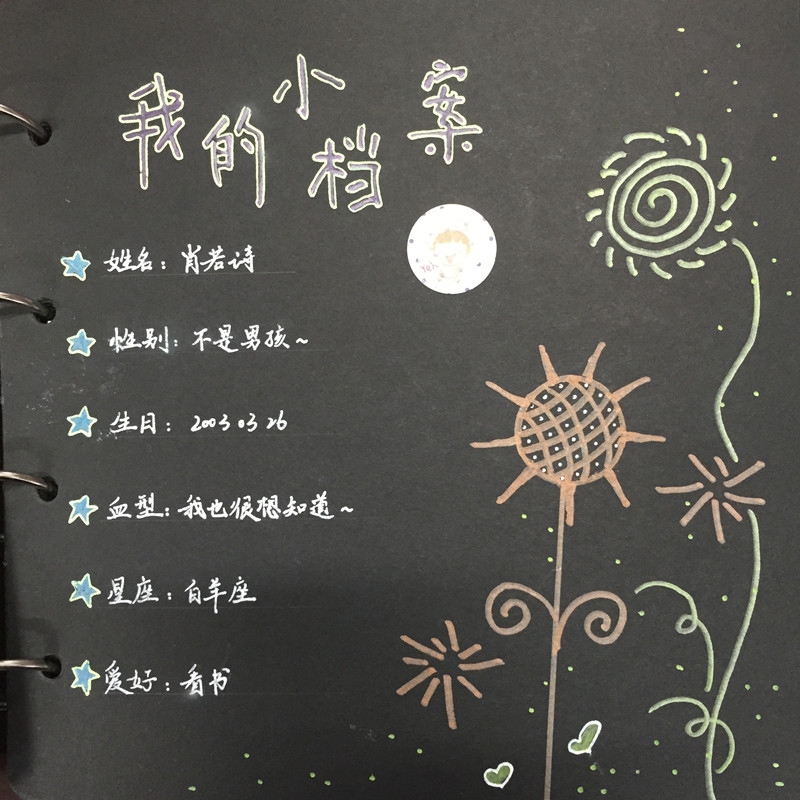 我的小档案
姓名：肖若诗
性别：不是男孩~
生日：2003 03 26
血型：我也很想知道~
星座：白羊座
爱好：看书